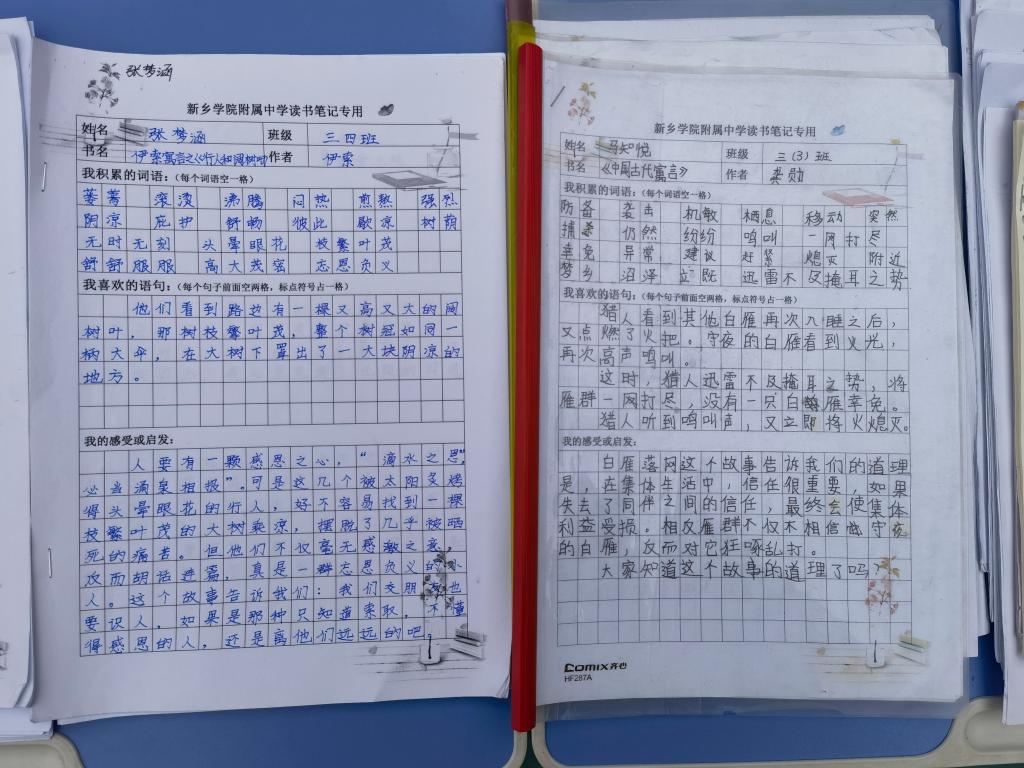 张梦涵
新乡学院附属中学读书笔记专用
姓名 张梦涵 班级 三四班
书名 伊索寓言之《行人和阔树叶 作者 伊索
我积累的词语：（每个词语空一格）
萎蔫 滚烫 沸腾 闷热 煎熬 强烈
阴凉 庇护 舒畅 彼此 歇凉 树荫
无时无刻 头晕眼花 枝繁叶茂
舒舒服服 高大茂密 忘恩负义
我喜欢的语句：（每个句子前面空两格，标点符号占一格）
他们看到路边有一棵又高又大的阔
树叶，那树枝繁叶茂，整个树冠如同一
柄大伞，在大树下罩出了一大块阴凉的
地方。
我的感受或启发：
人要有一颗感恩之心，“滴水之恩，
必当涌泉相报”。可是这几个被太阳多烤
得头晕眼花的行人，好不容易找到一棵
枝繁叶茂的大树乘凉，摆脱了几乎被晒
死的痛苦。但他们不仅毫无感激之意，
反而胡话连篇，真是一群忘恩负义的小
人。这个故事告诉我们：我们交朋 也
要识人，如果是那种只知道索取，不懂
得感恩的人，还是离他们远远的吧
新乡学院附属中学读书笔记专用
姓名 马知悦 班级 三（3）班
书名 《中国古代寓言》 作者 龚勋
我积累的词语：（每个词语空一格）
防备 袭击 机敏 栖息 移动 突然
捕杀 仍然 纷纷 鸣叫 一网打尽
幸免 异常 建议 赶紧 熄灭 附近
梦乡 沼泽 立既 迅雷不及掩耳之势
我喜欢的语句：（每个句子前面空两格，标点符号占一格）
猎人看到其他白雁再次入睡之后，
又点燃了火把。守夜的白雁看到火光，
再次高声鸣叫。
这时，猎人迅雷不及掩耳之势，将
雁群一网打尽，没有一只白雁幸免。
猎人听到鸣叫声，又立即将火熄灭。
我的感受或启发：
白雁落网这个故事告诉我们的道理
是，在集体生活中，信任很重要，如果
失去了同伴之间的信任，最终会使集体
利益受损。相反雁群不仅不相信守夜
的白雁，反而对它狂啄乱打。
大家知道这个故事的道理了吗？
COMIX齐心
HF287A